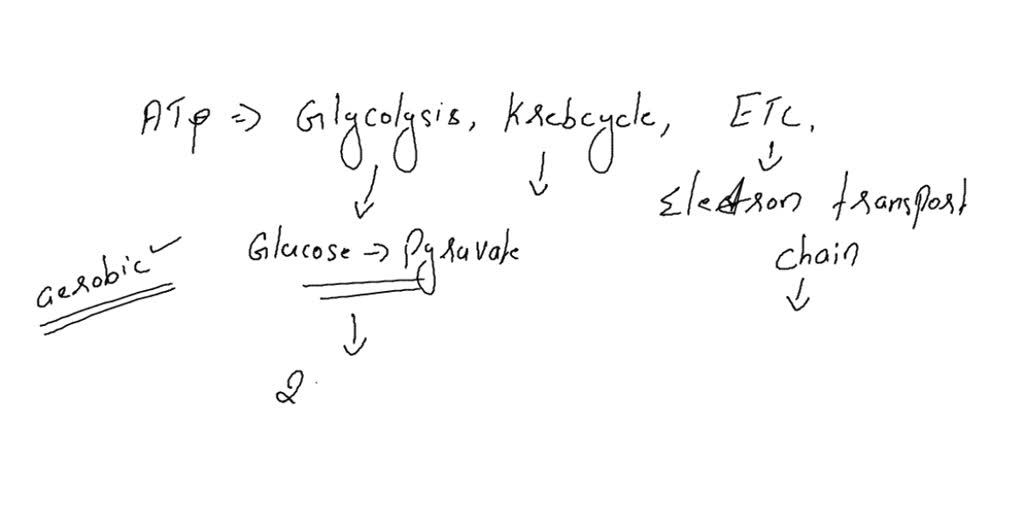 ATP ⇒ Glycolysis, Krebcycle, ETC.
Electron transport
chain
Glucose → Pyruvate
aerobic ✓
2